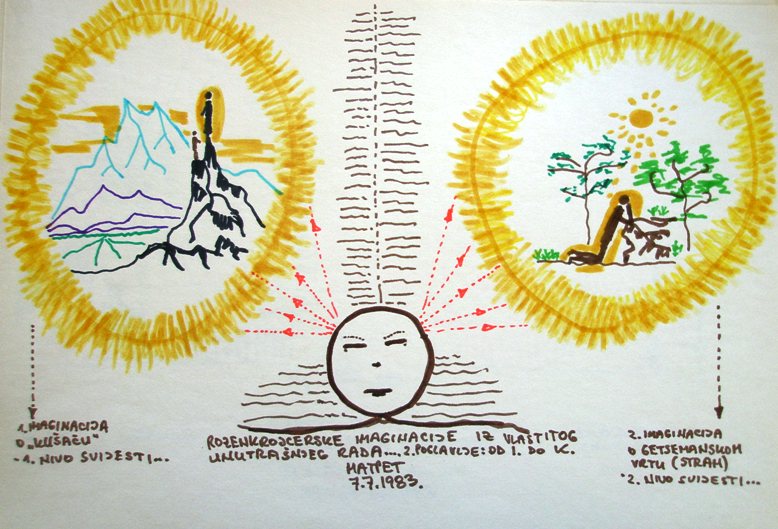 1. IMAGINACIJA
O „KUŠAČU"
- 1. NIVO SVIJESTI...
ROZENKROJCERSKE IMAGINACIJE IZ VLASTITOG
UNUTRAŠNJEG RADA... 2. POGLAVLJE: OD 1. DO K.
MATPET
7.7.1983.
2. IMAGINACIJA
O GETSEMANSKOM
VRTU (STRAH)
- 2. NIVO SVIJESTI...